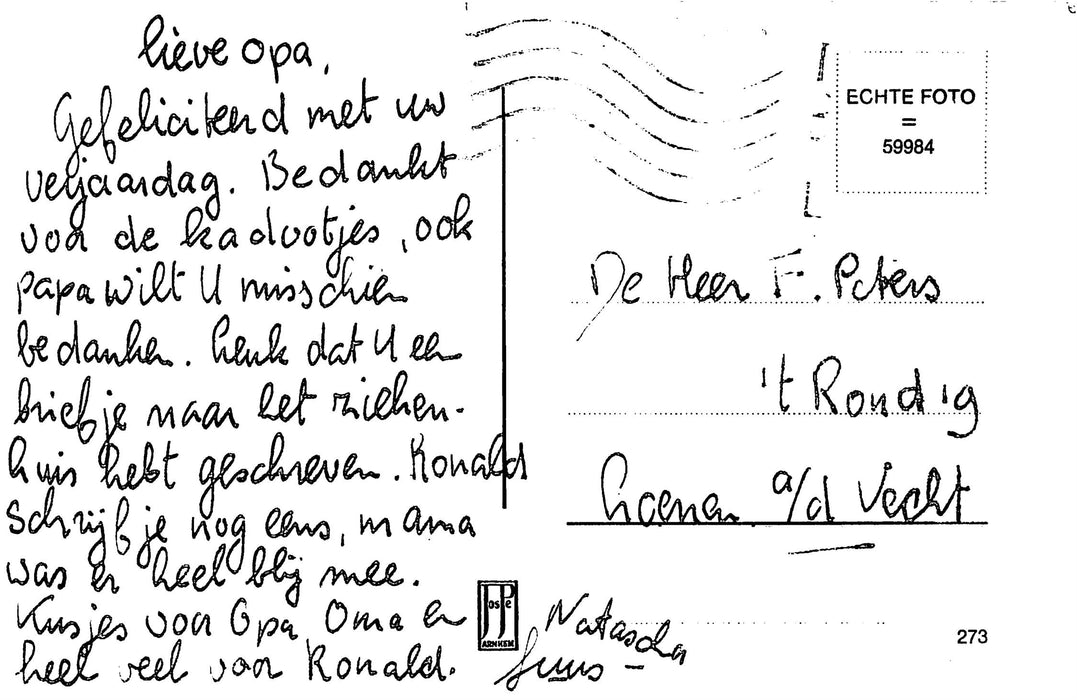 lieve opa,
Gefeliciteerd met uw
verjaardag. Bedankt
voor de kadootjes, ook
papa wilt U misschien
bedanken. Leuk dat U een
briefje naar het zieken-
huis hebt geschreven. Ronald
schrijf je nog eens, mama
was er heel blij mee.
Kusjes voor Opa, Oma en
heel veel voor Ronald.
Natascha
ECHTE FOTO
=
59984
De Heer F. Peters
't Rond 19
Loenen a/d Vecht
JosPe
ARNHEM
273